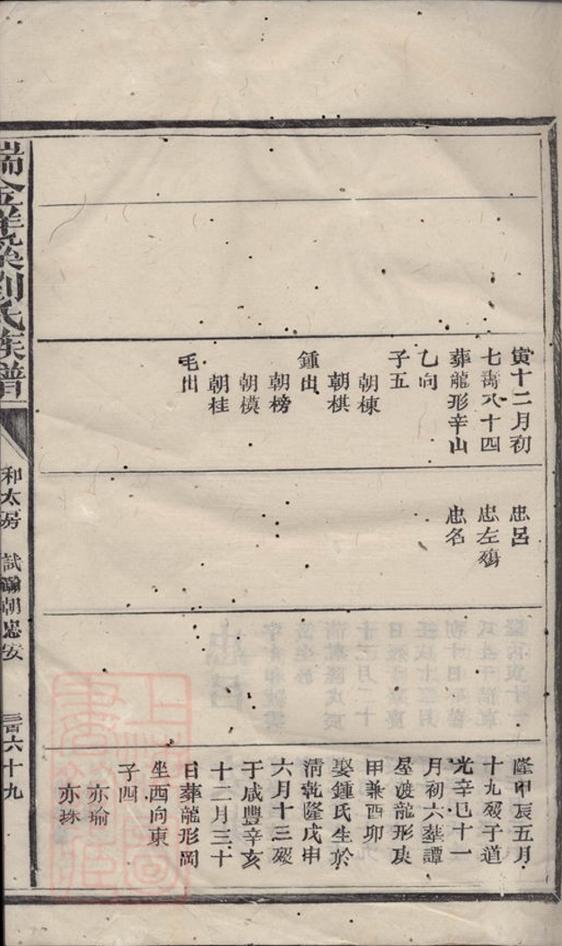 寅十二月初
七壽八十四
葬龍形辛山
乙向
子五
朝棟
朝棋
鍾出
朝榜
朝模
朝桂
毛出
忠呂
忠左殤
忠名
隆甲辰五月
十九歿于道
光辛巳十一
月初六葬譚
屋渡龍形庚
甲兼酉卯
娶鍾氏生於
清乾隆戊申
六月十三歿
于咸豐辛亥
十二月三十
日葬龍形岡
坐西向東
子四
亦瑜
亦珠
劉氏族譜
和太房
試 朝忠安
三百六十九